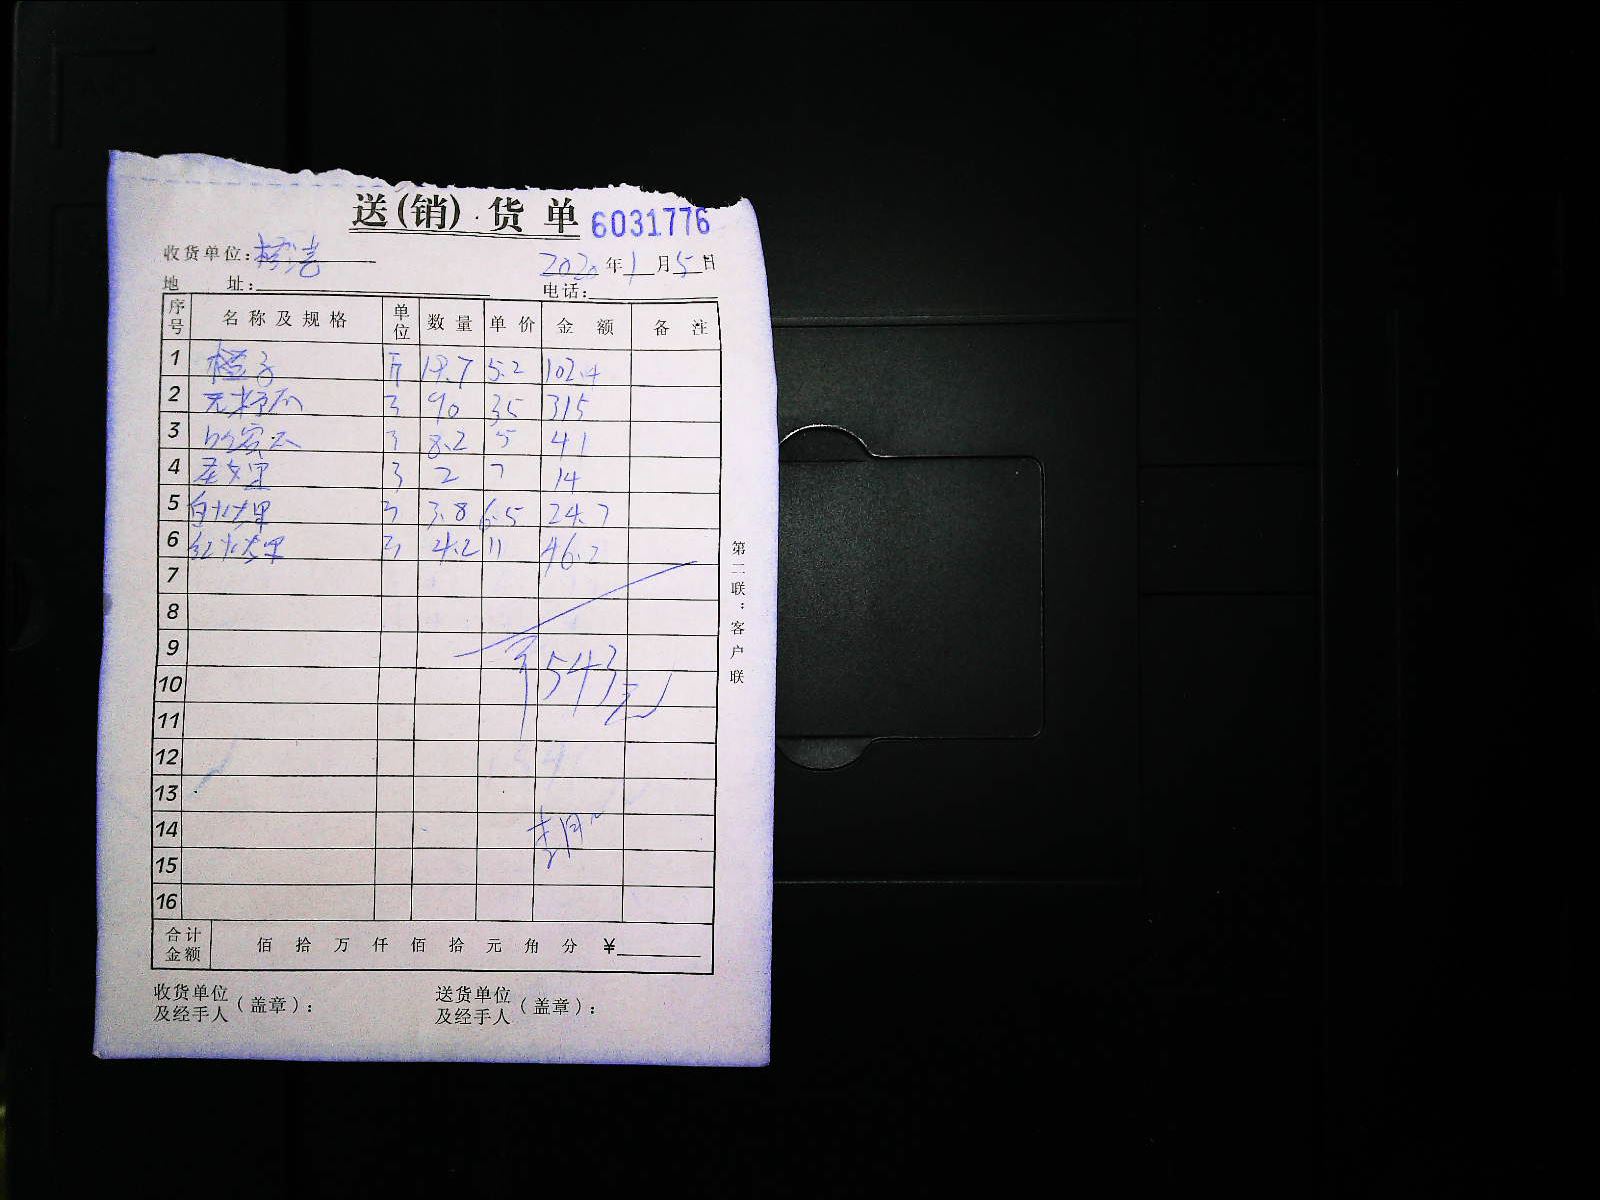 送(销)货单 6031776
收货单位:
2020年1月5日
地 址: 电话:
序号 名称及规格 单位 数量 单价 金额 备注
1 橙子 斤 19.7 5.2 102.4
2 90 35 315
3 8.2 5 41
4 2 7 14
5 白火龙果 3.8 6.5 24.7
6 红火龙果 4.2 11 46.2
7
8
9
10
¥543元
11
12
13
14
15
16
合计金额 佰 拾 万 仟 佰 拾 元 角 分 ¥
收货单位及经手人(盖章): 送货单位及经手人(盖章):
第二联:客户联